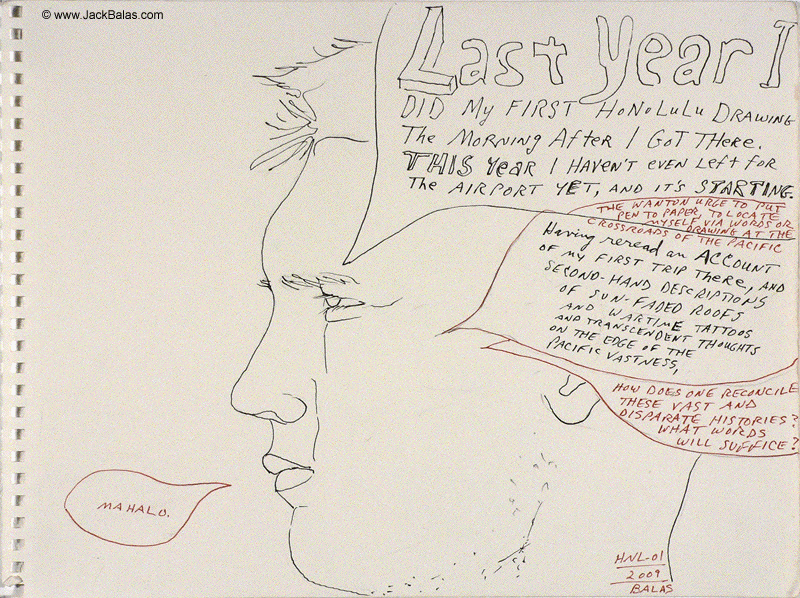 © www.JackBalas.com
Last Year I
DID MY FIRST HONOLULU DRAWING
THE MORNING AFTER I GOT THERE.
THIS YEAR I HAVEN'T EVEN LEFT FOR
THE AIRPORT YET, AND IT'S STARTING.
THE WANTON URGE TO PUT
PEN TO PAPER, TO LOCATE
MYSELF VIA WORDS OR
DRAWING AT THE
CROSSROADS OF THE PACIFIC
Having reread an ACCOUNT
OF MY FIRST TRIP THERE, AND
SECOND-HAND DESCRIPTIONS
OF SUN-FADED ROOFS
AND WARTIME TATTOOS
AND TRANSCENDENT THOUGHTS
ON THE EDGE OF THE
PACIFIC VASTNESS,
HOW DOES ONE RECONCILE
THESE VAST AND
DISPARATE HISTORIES?
WHAT WORDS
WILL SUFFICE?
MAHALO.
HNL-01
2009
BALAS